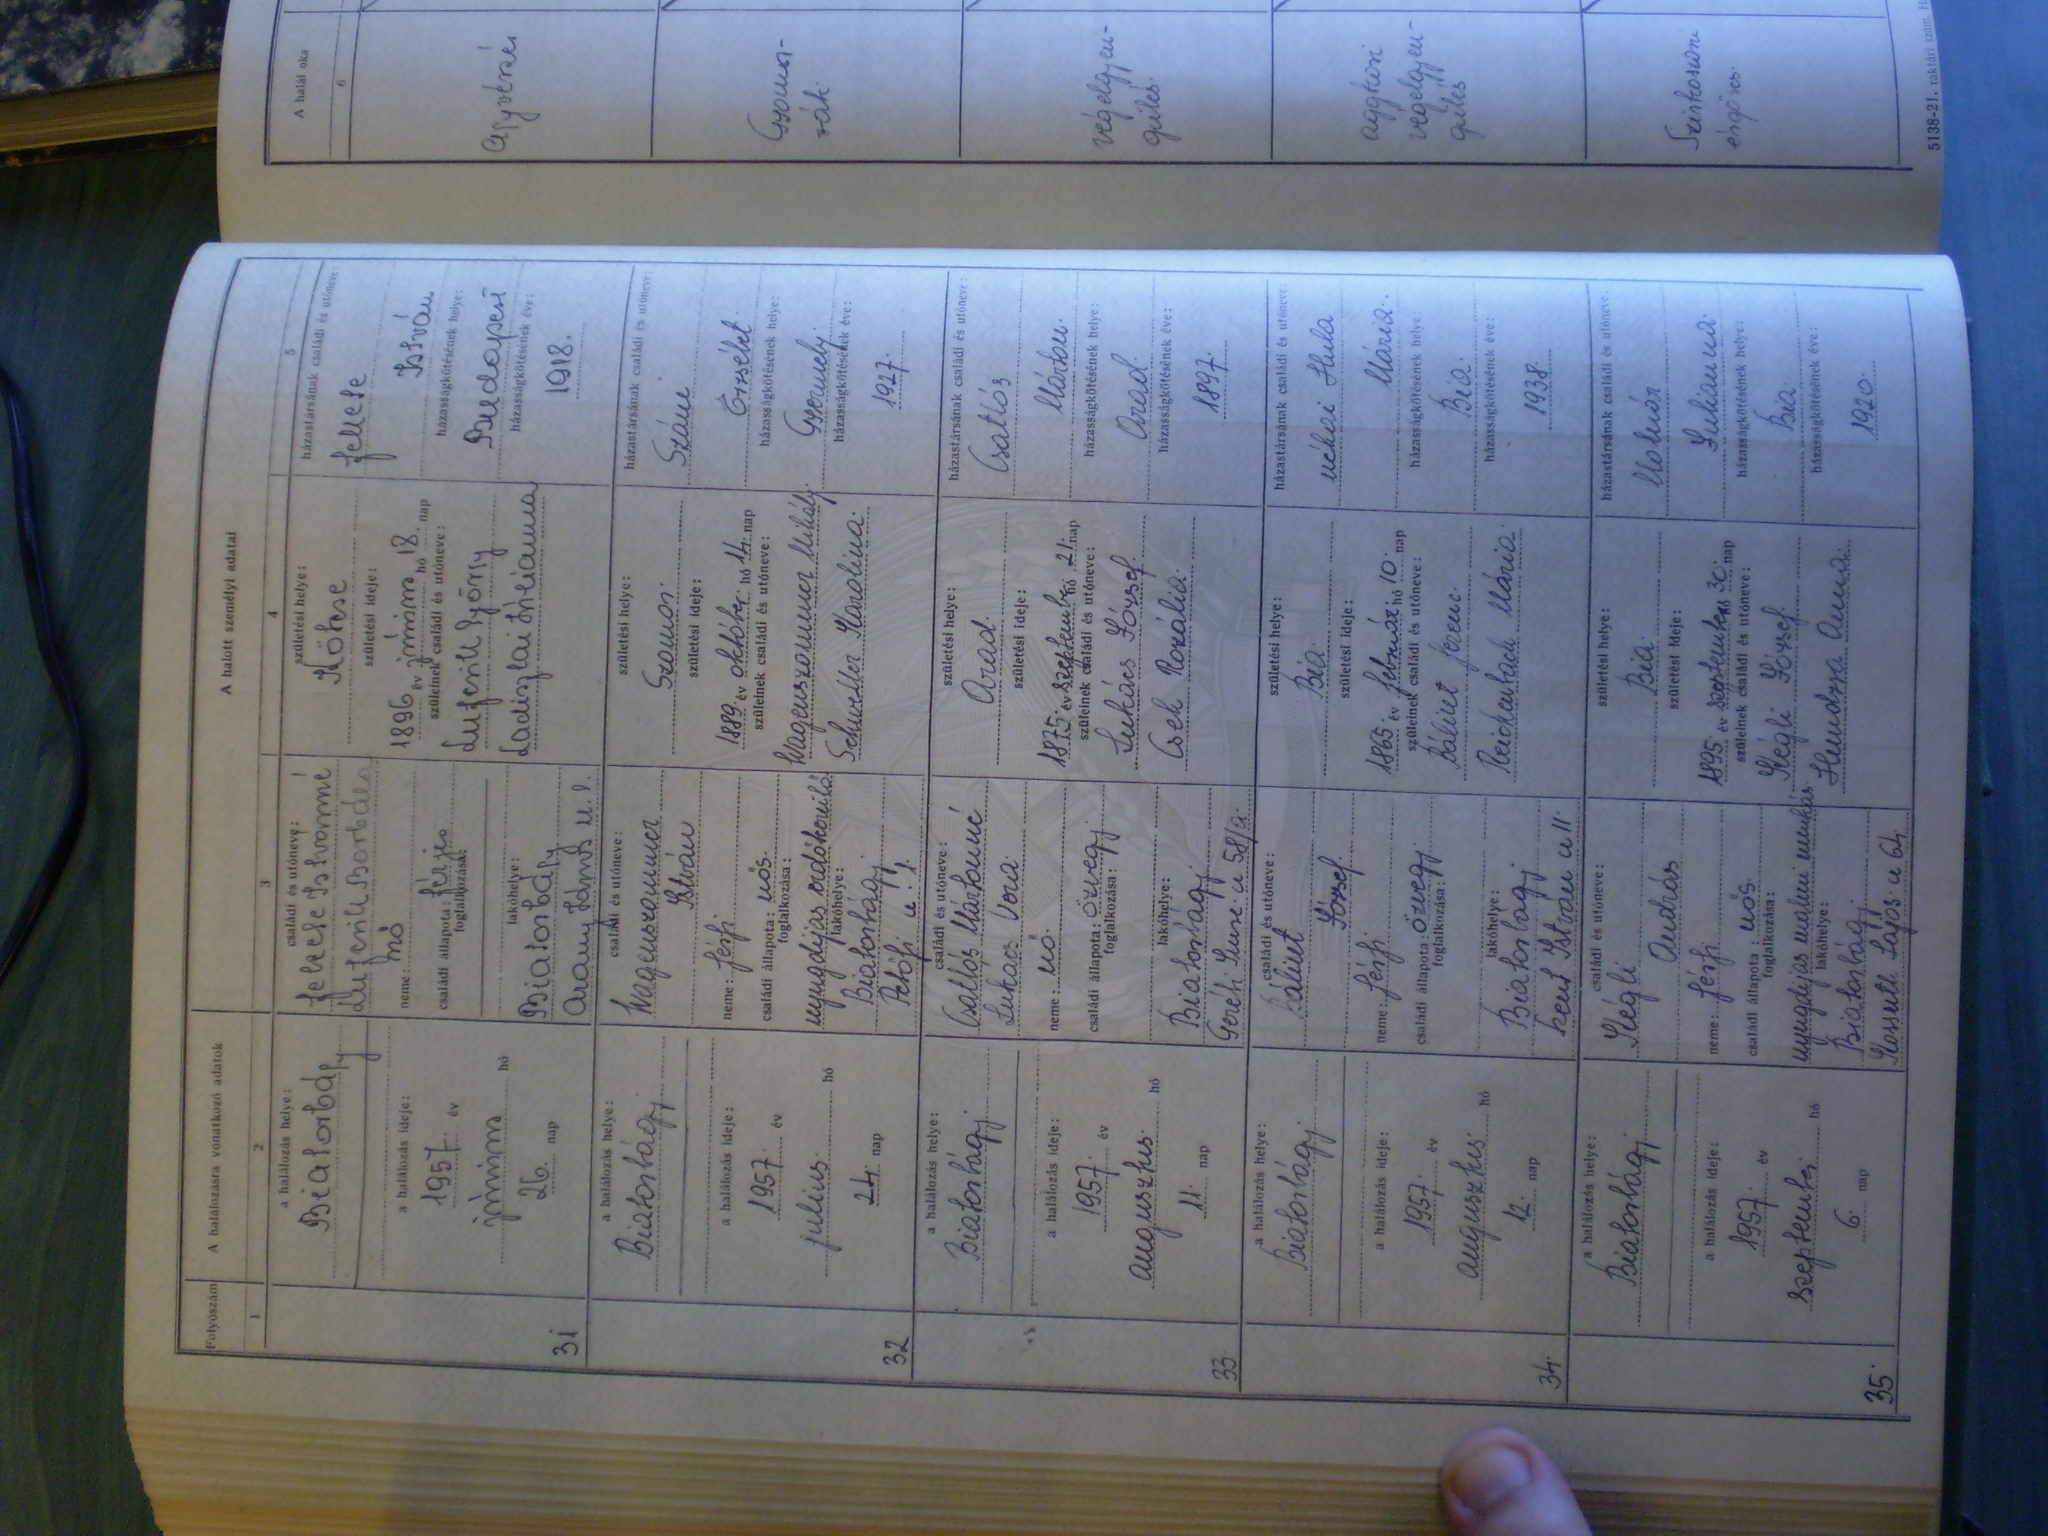 Folyószám
A halálozásra vonatkozó adatok
A halott személyi adatai
A halál oka
1
2
3
4
5
6
31
a halálozás helye:
Biatorbágy
a halálozás ideje:
1957. év
június hó
26. nap
családi és utóneve:
Fekete Istvánné
Borbála
neme: nő
családi állapota: férjes
foglalkozása:
lakóhelye:
Biatorbágy
Arany János u. 2.
születési helye:
születési ideje:
1896 év június hó 18. nap
szüleinek családi és utóneve:
György
házastársának családi és utóneve:
Fekete
István
házasságkötésének helye:
Budapest
házasságkötésének éve:
1918.
Agyvérzés
32
a halálozás helye:
Biatorbágy
a halálozás ideje:
1957. év
julius. hó
24. nap
családi és utóneve:
Wagenszommer
István
neme: férfi
családi állapota: nős.
foglalkozása:
nyugdijas
lakóhelye:
Biatorbágy.
Petőfi u. 1.
születési helye:
Szomor.
születési ideje:
1889. év október hó 14. nap
szüleinek családi és utóneve:
Wagenszommer Mihály.
Karolina.
házastársának családi és utóneve:
Száni
Erzsébet.
házasságkötésének helye:
Gyermely.
házasságkötésének éve:
1927.
Gyomor-
rák.
33.
a halálozás helye:
Biatorbágy
a halálozás ideje:
1957. év
augusztus. hó
11. nap
családi és utóneve:
Csatlós Mártonné
Lukács Vera.
neme: nő.
családi állapota: özvegy.
foglalkozása:
lakóhelye:
Biatorbágy.
Geréti Imre. u 58/a.
születési helye:
Arad.
születési ideje:
1875. év szeptember hó 21. nap
szüleinek családi és utóneve:
Lukács József.
Cseh Rozália.
házastársának családi és utóneve:
Csatlós
Márton.
házasságkötésének helye:
Arad.
házasságkötésének éve:
1897.
végelgyen-
gülés.
34.
a halálozás helye:
Biatorbágy.
a halálozás ideje:
1957. év
augusztus. hó
12. nap
családi és utóneve:
Bálint
József.
neme: férfi
családi állapota: özvegy.
foglalkozása:
lakóhelye:
Biatorbágy
szent István u 11.
születési helye:
Bia.
születési ideje:
1865. év február hó 10. nap
szüleinek családi és utóneve:
Bálint Ferenc.
Reichenbach Mária.
házastársának családi és utóneve:
néhai Hula
Mária.
házasságkötésének helye:
Bia.
házasságkötésének éve:
1938.
aggkori
végelgyen-
gülés
35.
a halálozás helye:
Biatorbágy.
a halálozás ideje:
1957. év
szeptember hó
6. nap
családi és utóneve:
Négli
András
neme: férfi
családi állapota: nős.
foglalkozása:
nyugdijas malmi munkás
lakóhelye:
Biatorbágy.
Kossuth Lajos. u 64
születési helye:
Bia.
születési ideje:
1895. év szeptember hó 30. nap
szüleinek családi és utóneve:
Négli József.
Anna.
házastársának családi és utóneve:
Molnár
Zsuzsanna.
házasságkötésének helye:
Bia.
házasságkötésének éve:
1920.
Szívkoszorú
érgörcs.